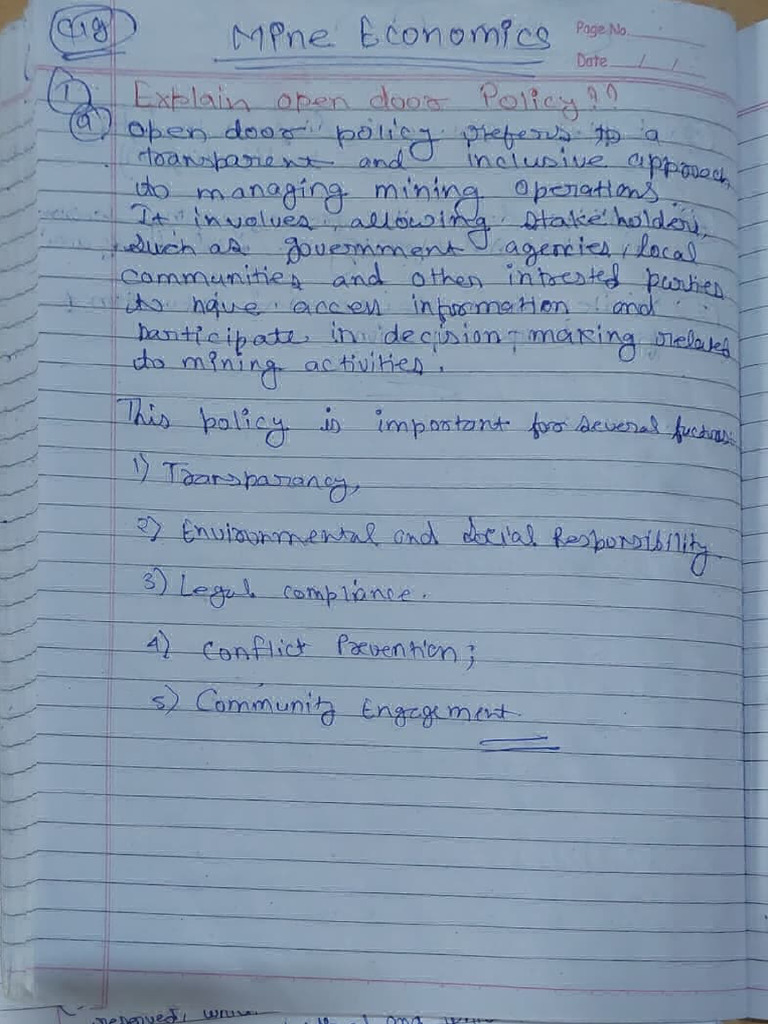 Mine Economics
Page No.
Date / /
1
Explain open door Policy??
a) open door policy refers to a
transparent and inclusive approach
to managing mining operations.
It involves allowing stakeholders,
such as government agencies, local
communities and other intrested parties
to have access information and
participate in decision-making related
to mining activities.
This policy is important for several
1) Transparancy,
2) Environmental and social Responsibility
3) Legal compliance.
4) Conflict Prevention;
5) Community Engagement
reserved,